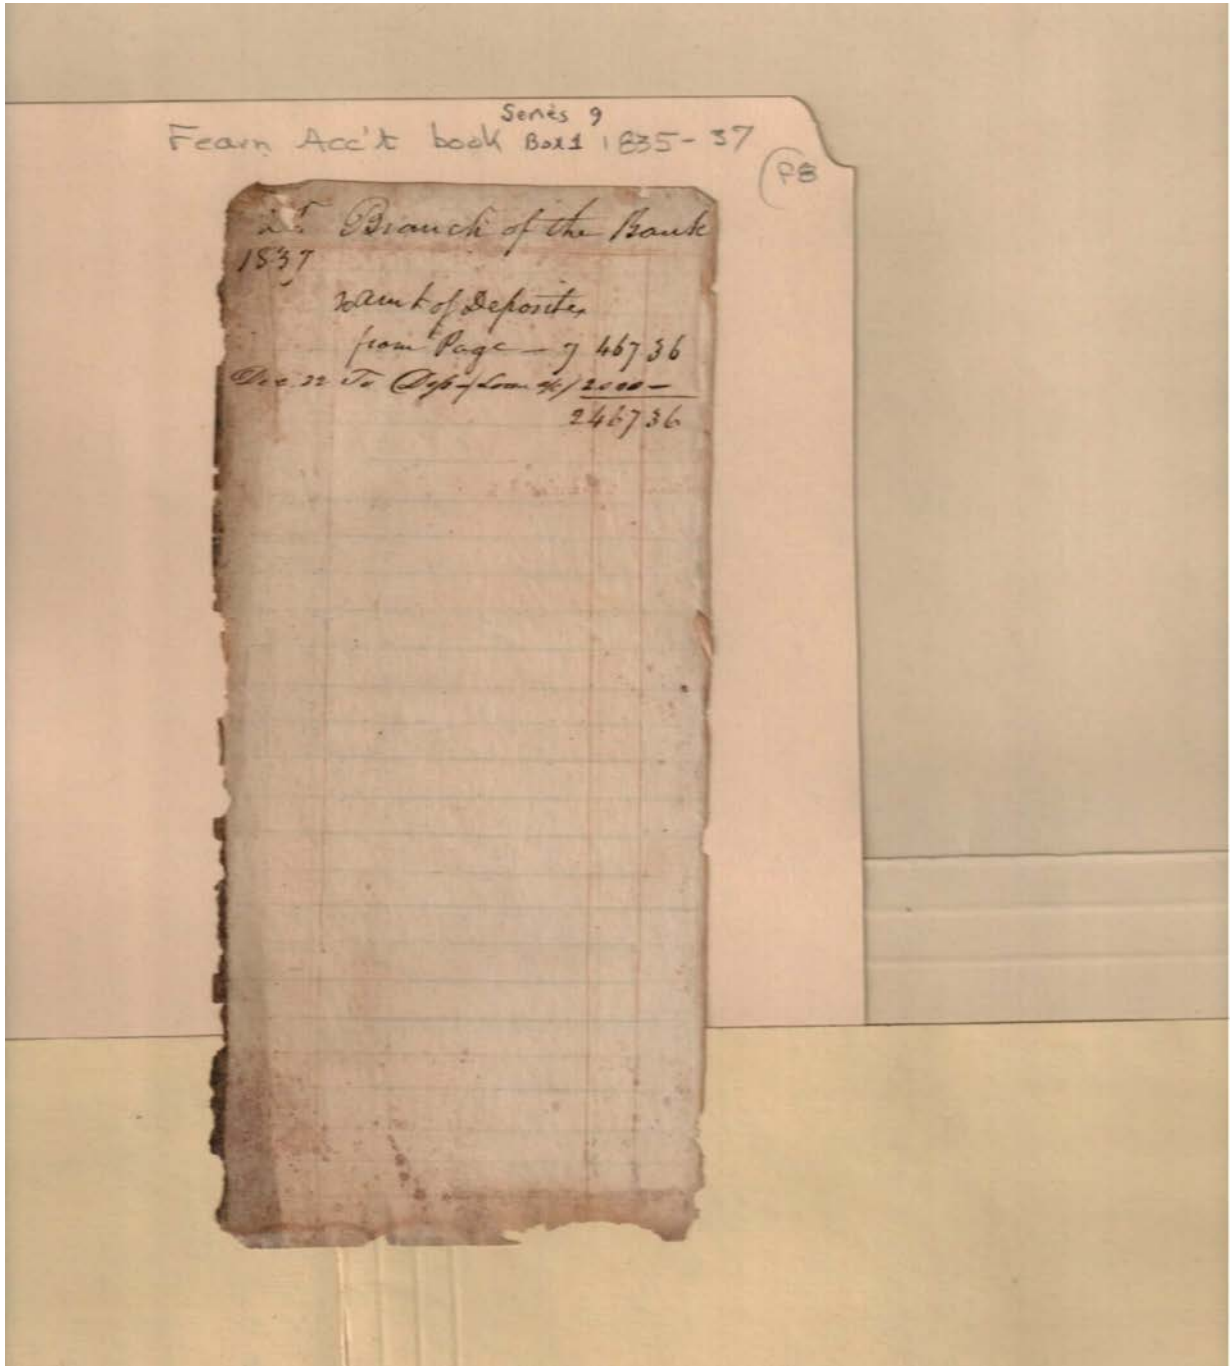 Series 9
Fearn Acc't book Box 1 1835-37
P8
Branch of the Bank
1837
amt of Deposites
from Page — 7 467 36
Dec 22 To Dep 2000 —
2467 36